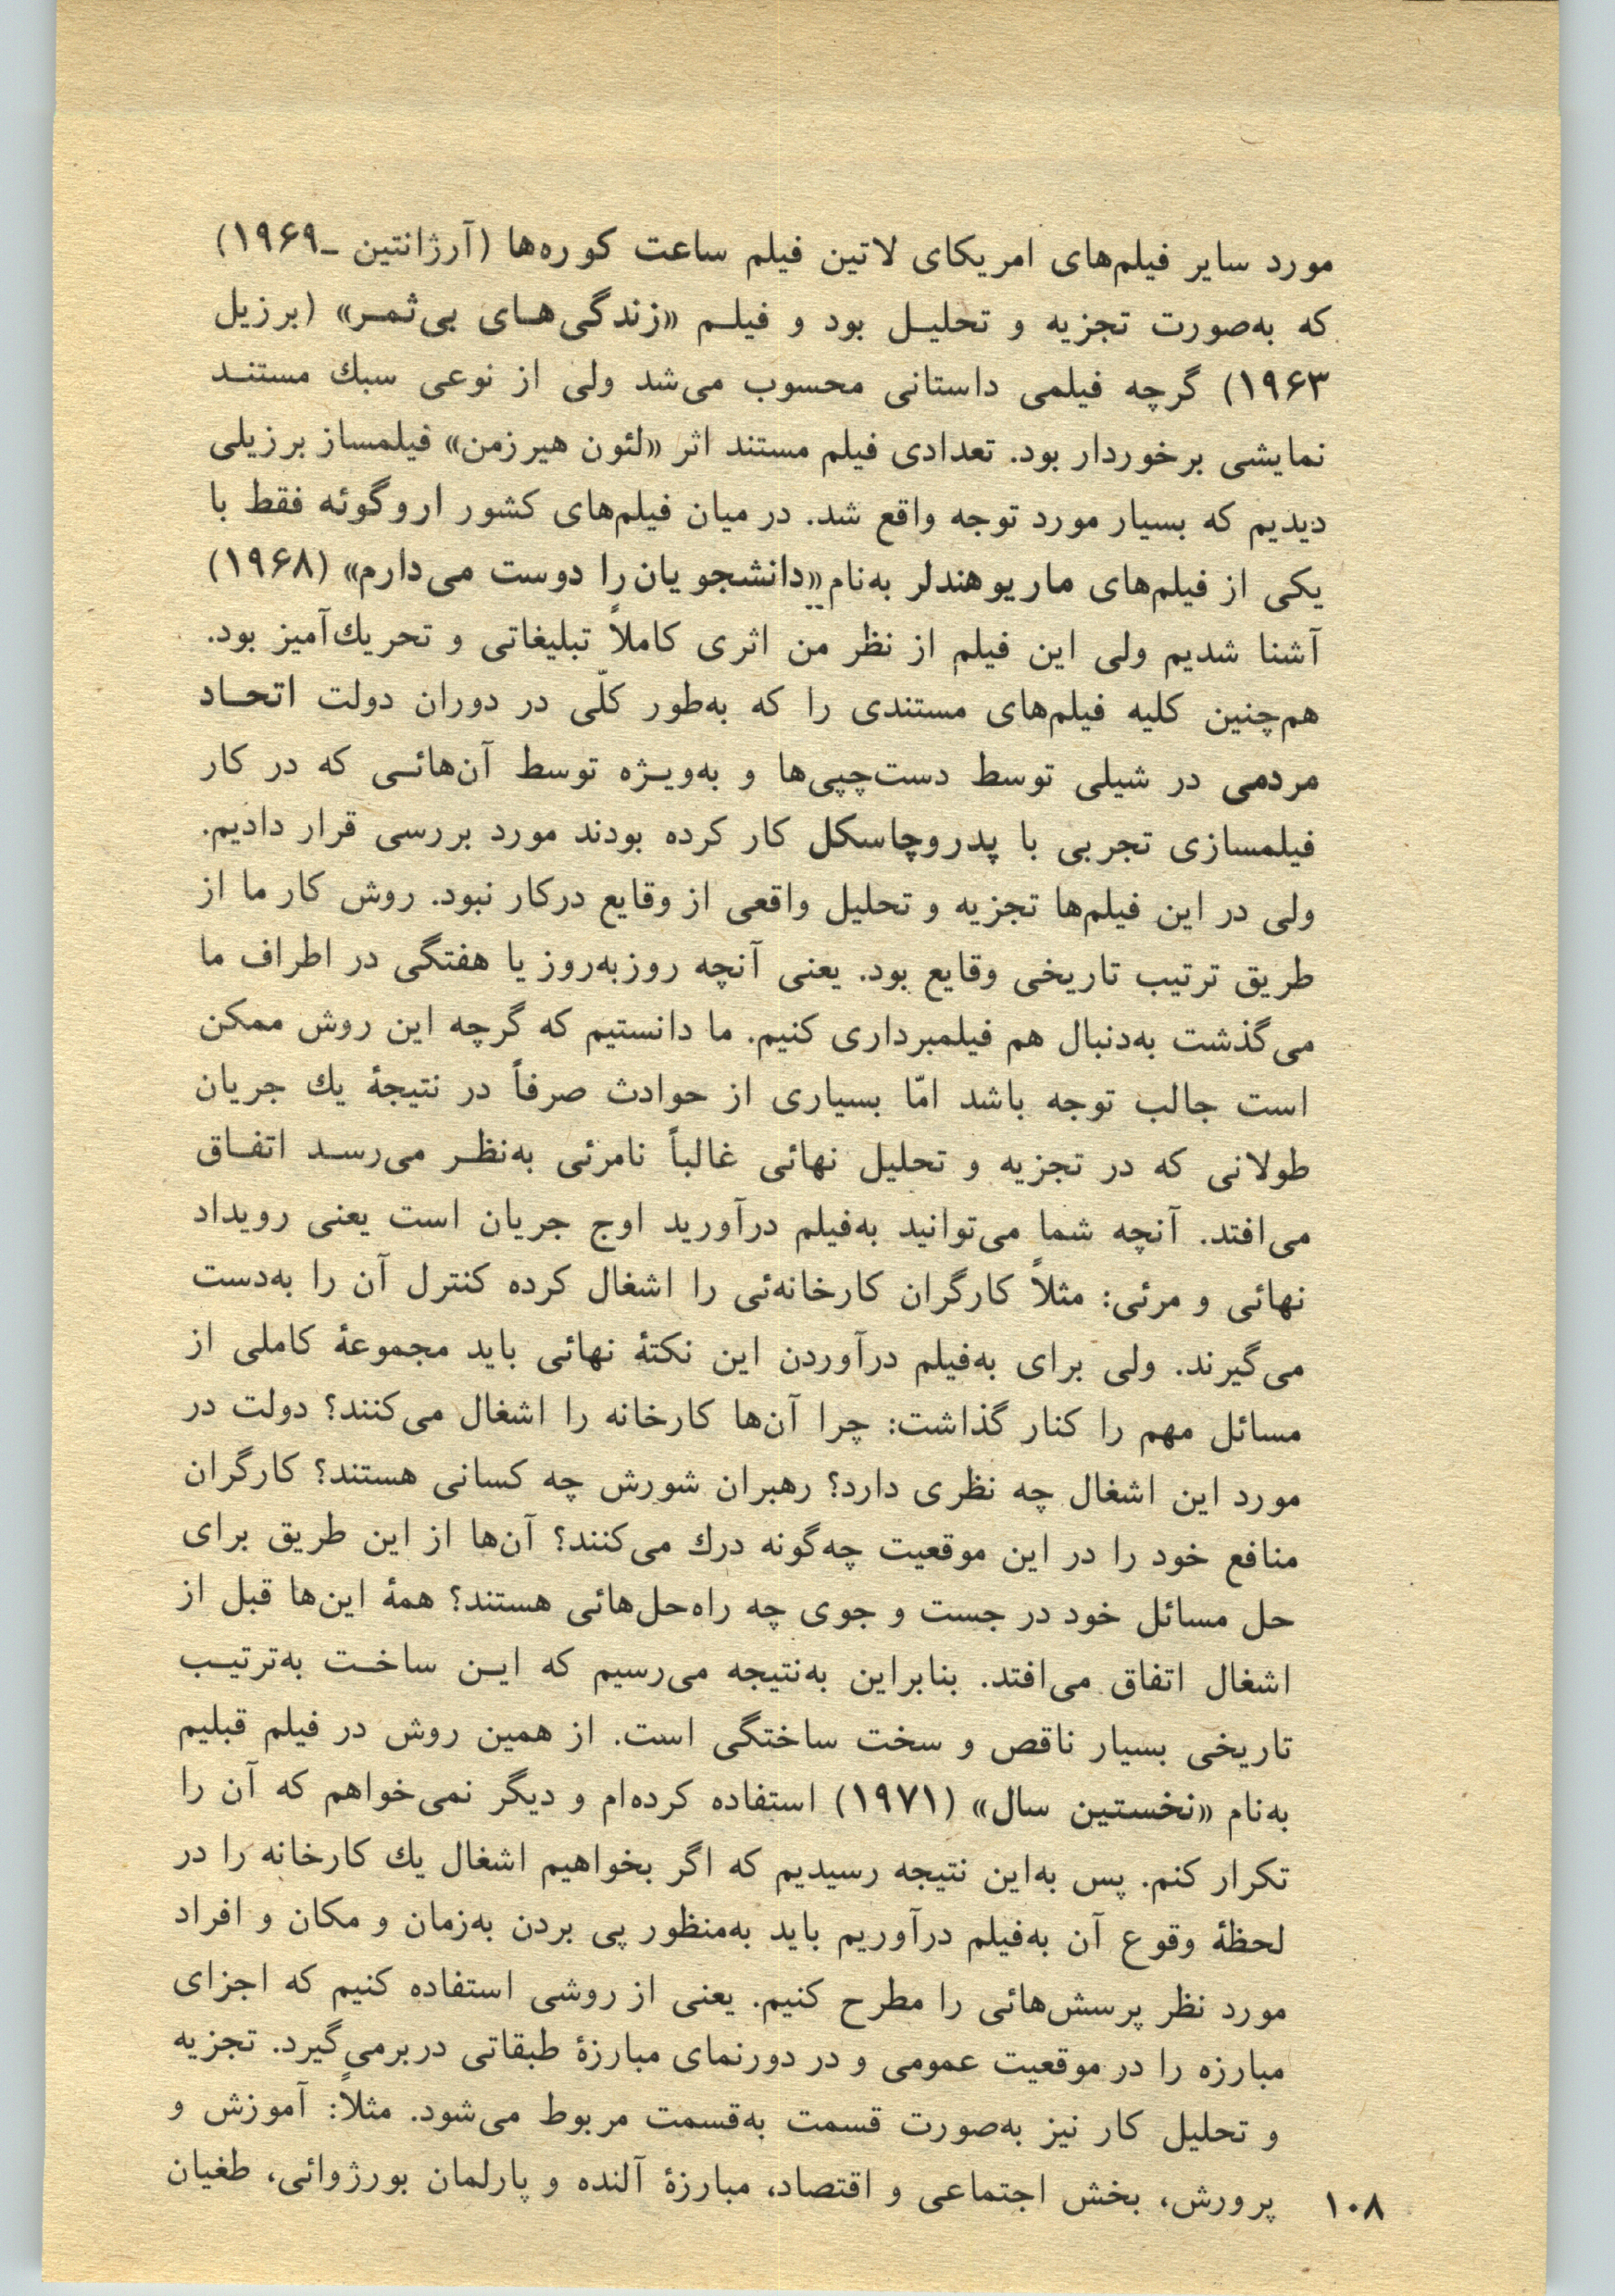 مورد سایر فیلم‌های امریکای لاتین فیلم ساعت کوره‌ها (آرژانتین ـ۱۹۶۹)
که به‌صورت تجزیه و تحلیـل بود و فیلـم «زندگی‌هـای بی‌ثمـر» (برزیل
۱۹۶۳) گرچه فیلمی داستانی محسوب می‌شد ولی از نوعی سبك مستنـد
نمایشی برخوردار بود. تعدادی فیلم مستند اثر «لئون هیرزمن» فیلمساز برزیلی
دیدیم که بسیار مورد توجه واقع شد. در میان فیلم‌های کشور اروگوئه فقط با
یکی از فیلم‌های ماریوهندلر به‌نام «دانشجویان را دوست می‌دارم» (۱۹۶۸)
آشنا شدیم ولی این فیلم از نظر من اثری کاملاً تبلیغاتی و تحریك‌آمیز بود.
هم‌چنین کلیه فیلم‌های مستندی را که به‌طور کلّی در دوران دولت اتحـاد
مردمی در شیلی توسط دست‌چپی‌ها و به‌ویـژه توسط آن‌هائـی که در کار
فیلمسازی تجربی با پدروچاسکل کار کرده بودند مورد بررسی قرار دادیم.
ولی در این فیلم‌ها تجزیه و تحلیل واقعی از وقایع درکار نبود. روش کار ما از
طریق ترتیب تاریخی وقایع بود. یعنی آنچه روزبه‌روز یا هفتگی در اطراف ما
می‌گذشت به‌دنبال هم فیلمبرداری کنیم. ما دانستیم که گرچه این روش ممکن
است جالب توجه باشد امّا بسیاری از حوادث صرفاً در نتیجهٔ یك جریان
طولانی که در تجزیه و تحلیل نهائی غالباً نامرئی به‌نظـر می‌رسـد اتفـاق
می‌افتد. آنچه شما می‌توانید به‌فیلم درآورید اوج جریان است یعنی رویداد
نهائی و مرئی: مثلاً کارگران کارخانه‌ئی را اشغال کرده کنترل آن را به‌دست
می‌گیرند. ولی برای به‌فیلم درآوردن این نکتهٔ نهائی باید مجموعهٔ کاملی از
مسائل مهم را کنار گذاشت: چرا آن‌ها کارخانه را اشغال می‌کنند؟ دولت در
مورد این اشغال چه نظری دارد؟ رهبران شورش چه کسانی هستند؟ کارگران
منافع خود را در این موقعیت چه‌گونه درك می‌کنند؟ آن‌ها از این طریق برای
حل مسائل خود در جست و جوی چه راه‌حل‌هائی هستند؟ همهٔ این‌ها قبل از
اشغال اتفاق می‌افتد. بنابراین به‌نتیجه می‌رسیم که ایـن ساخـت به‌ترتیـب
تاریخی بسیار ناقص و سخت ساختگی است. از همین روش در فیلم قبلیم
به‌نام «نخستین سال» (۱۹۷۱) استفاده کرده‌ام و دیگر نمی‌خواهم که آن را
تکرار کنم. پس به‌این نتیجه رسیدیم که اگر بخواهیم اشغال یك کارخانه را در
لحظهٔ وقوع آن به‌فیلم درآوریم باید به‌منظور پی بردن به‌زمان و مکان و افراد
مورد نظر پرسش‌هائی را مطرح کنیم. یعنی از روشی استفاده کنیم که اجزای
مبارزه را در موقعیت عمومی و در دورنمای مبارزهٔ طبقاتی دربرمی‌گیرد. تجزیه
و تحلیل کار نیز به‌صورت قسمت به‌قسمت مربوط می‌شود. مثلاً: آموزش و
پرورش، بخش اجتماعی و اقتصاد، مبارزهٔ آلنده و پارلمان بورژوائی، طغیان
۱۰۸